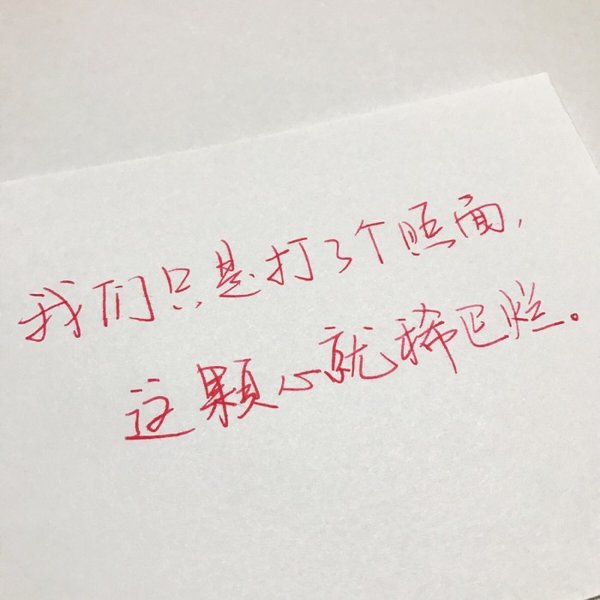 我们只是打了个照面，
这颗心就稀巴烂。